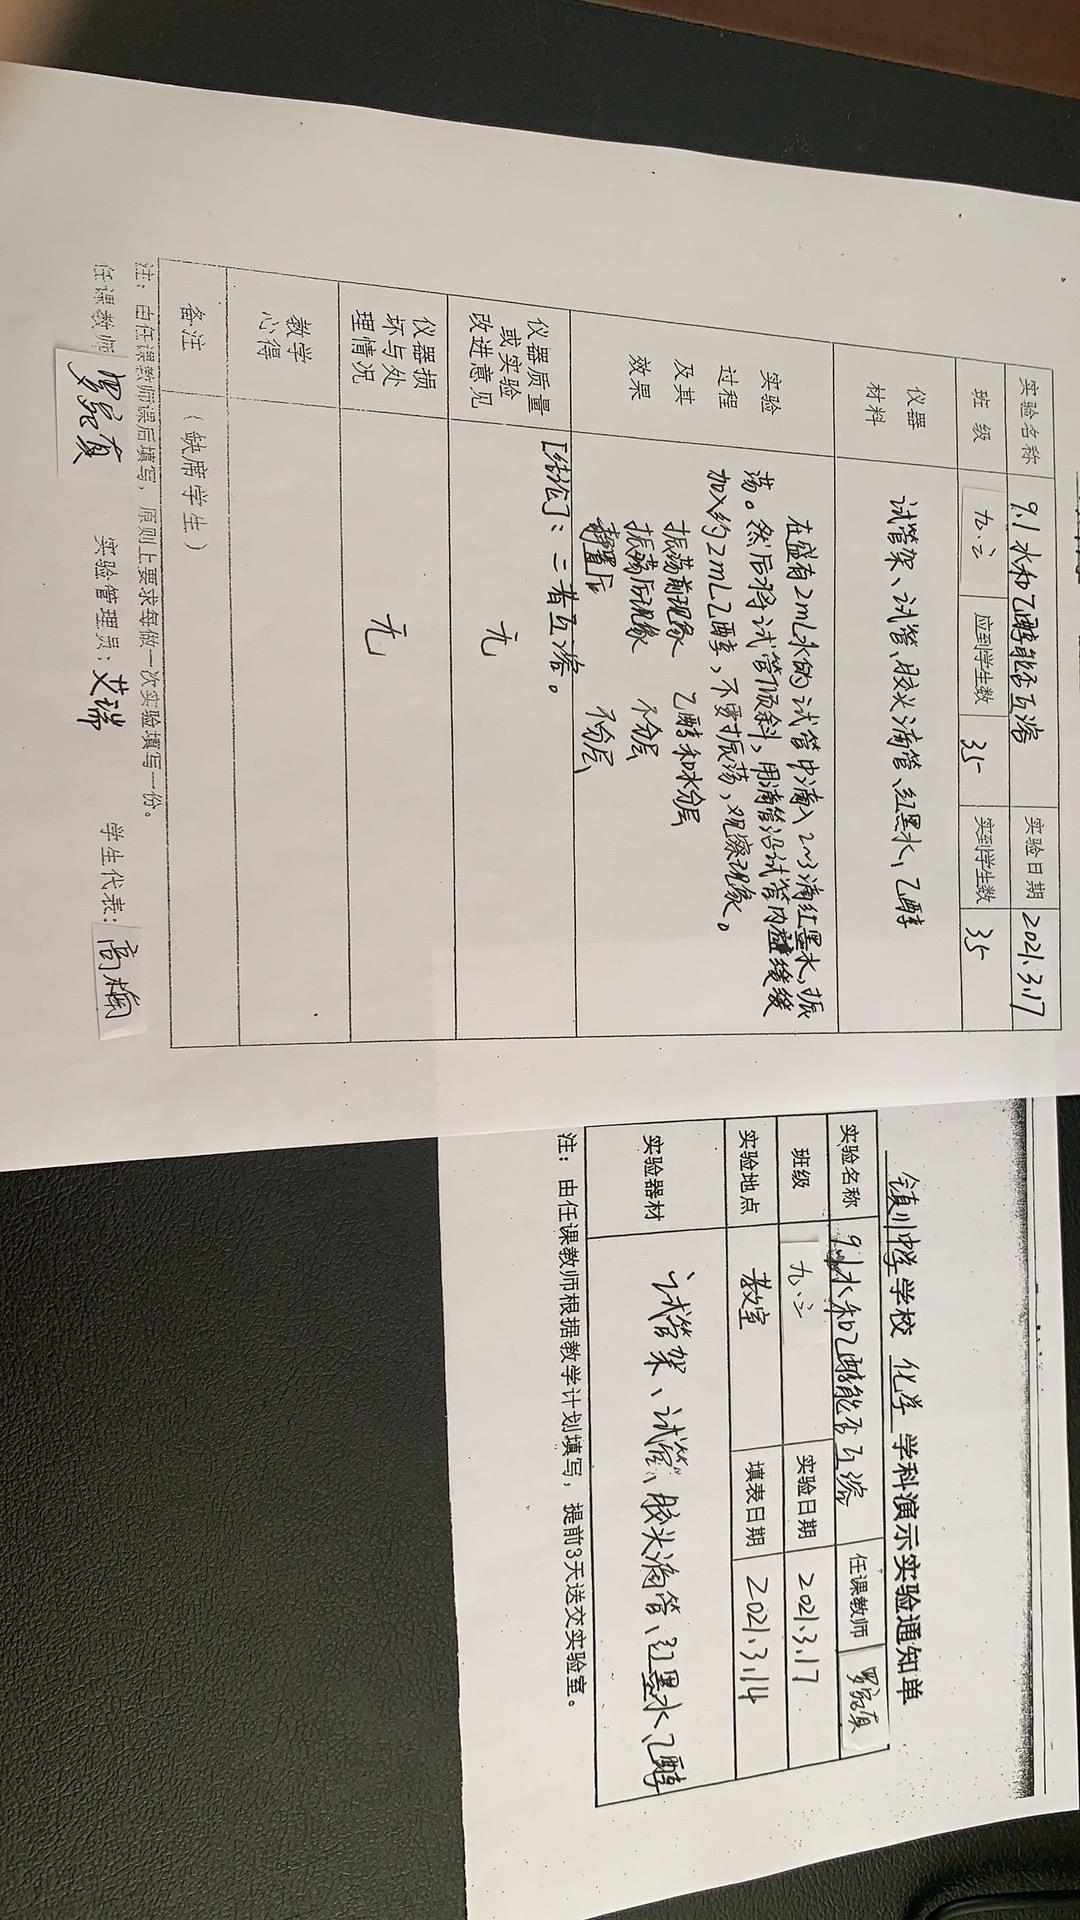 实验名称 9.1水和乙醇能否互溶 实验日期 2021.3.17
班 级 九.三 应到学生数 35 实到学生数 35
仪器
材料
试管架、试管、胶头滴管、红墨水、乙醇
实验
过程
及其
效果
在盛有2mL水的试管中滴入2~3滴红墨水,振
荡。然后将试管倾斜,用滴管沿试管内壁缓缓
加入约2mL乙醇,不要振荡,观察现象。
振荡前现象 乙醇和水分层
振荡后现象 不分层
静置后 不分层
[结论]:二者互溶。
仪器质量
或实验
改进意见
无
仪器损
坏与处
理情况
无
教学
心得
备注 (缺席学生)
注:由任课教师课后填写,原则上要求每做一次实验填写一份。
任课教师 实验管理员:艾瑞 学生代表:高楠
镇川中学学校 化学 学科演示实验通知单
实验名称 9.1水和乙醇能否互溶 任课教师
班级 实验日期 2021.3.17
实验地点 教室 填表日期 2021.3.14
实验器材 试管架、试管、胶头滴管、红墨水、乙醇
注:由任课教师根据教学计划填写,提前3天送交实验室。